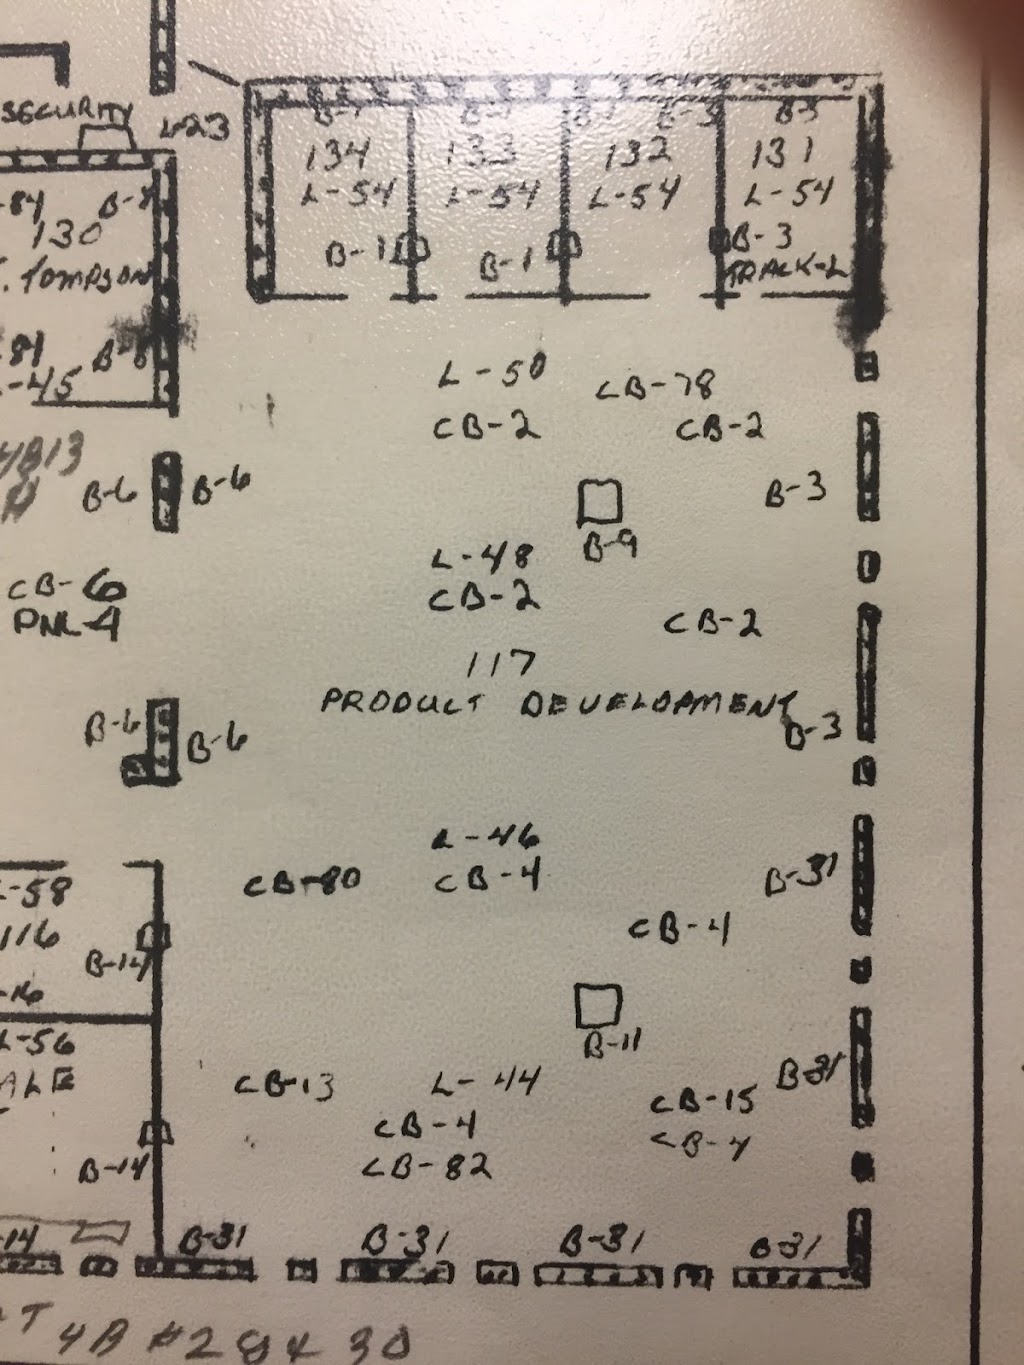 SECURITY
L-23
134
L-54
B-1
133
L-54
B-1
132
L-54
B-3
131
L-54
B-3
TRACK-L
-84
130
TOMPSON
-45
B-6
B-6
CB-6
PNL-4
B-6
B-6
L-50
CB-78
CB-2
CB-2
B-3
B-9
L-48
CB-2
CB-2
117
PRODUCT DEVELOPMENT
B-3
L-46
CB-80
CB-4
B-31
CB-4
B-11
CB-13
L-44
B-31
CB-15
CB-4
CB-4
CB-82
L-58
116
B-14
-16
L-56
ALE
B-14
-14
B-31
B-31
B-31
B-31
4B #28 & 30